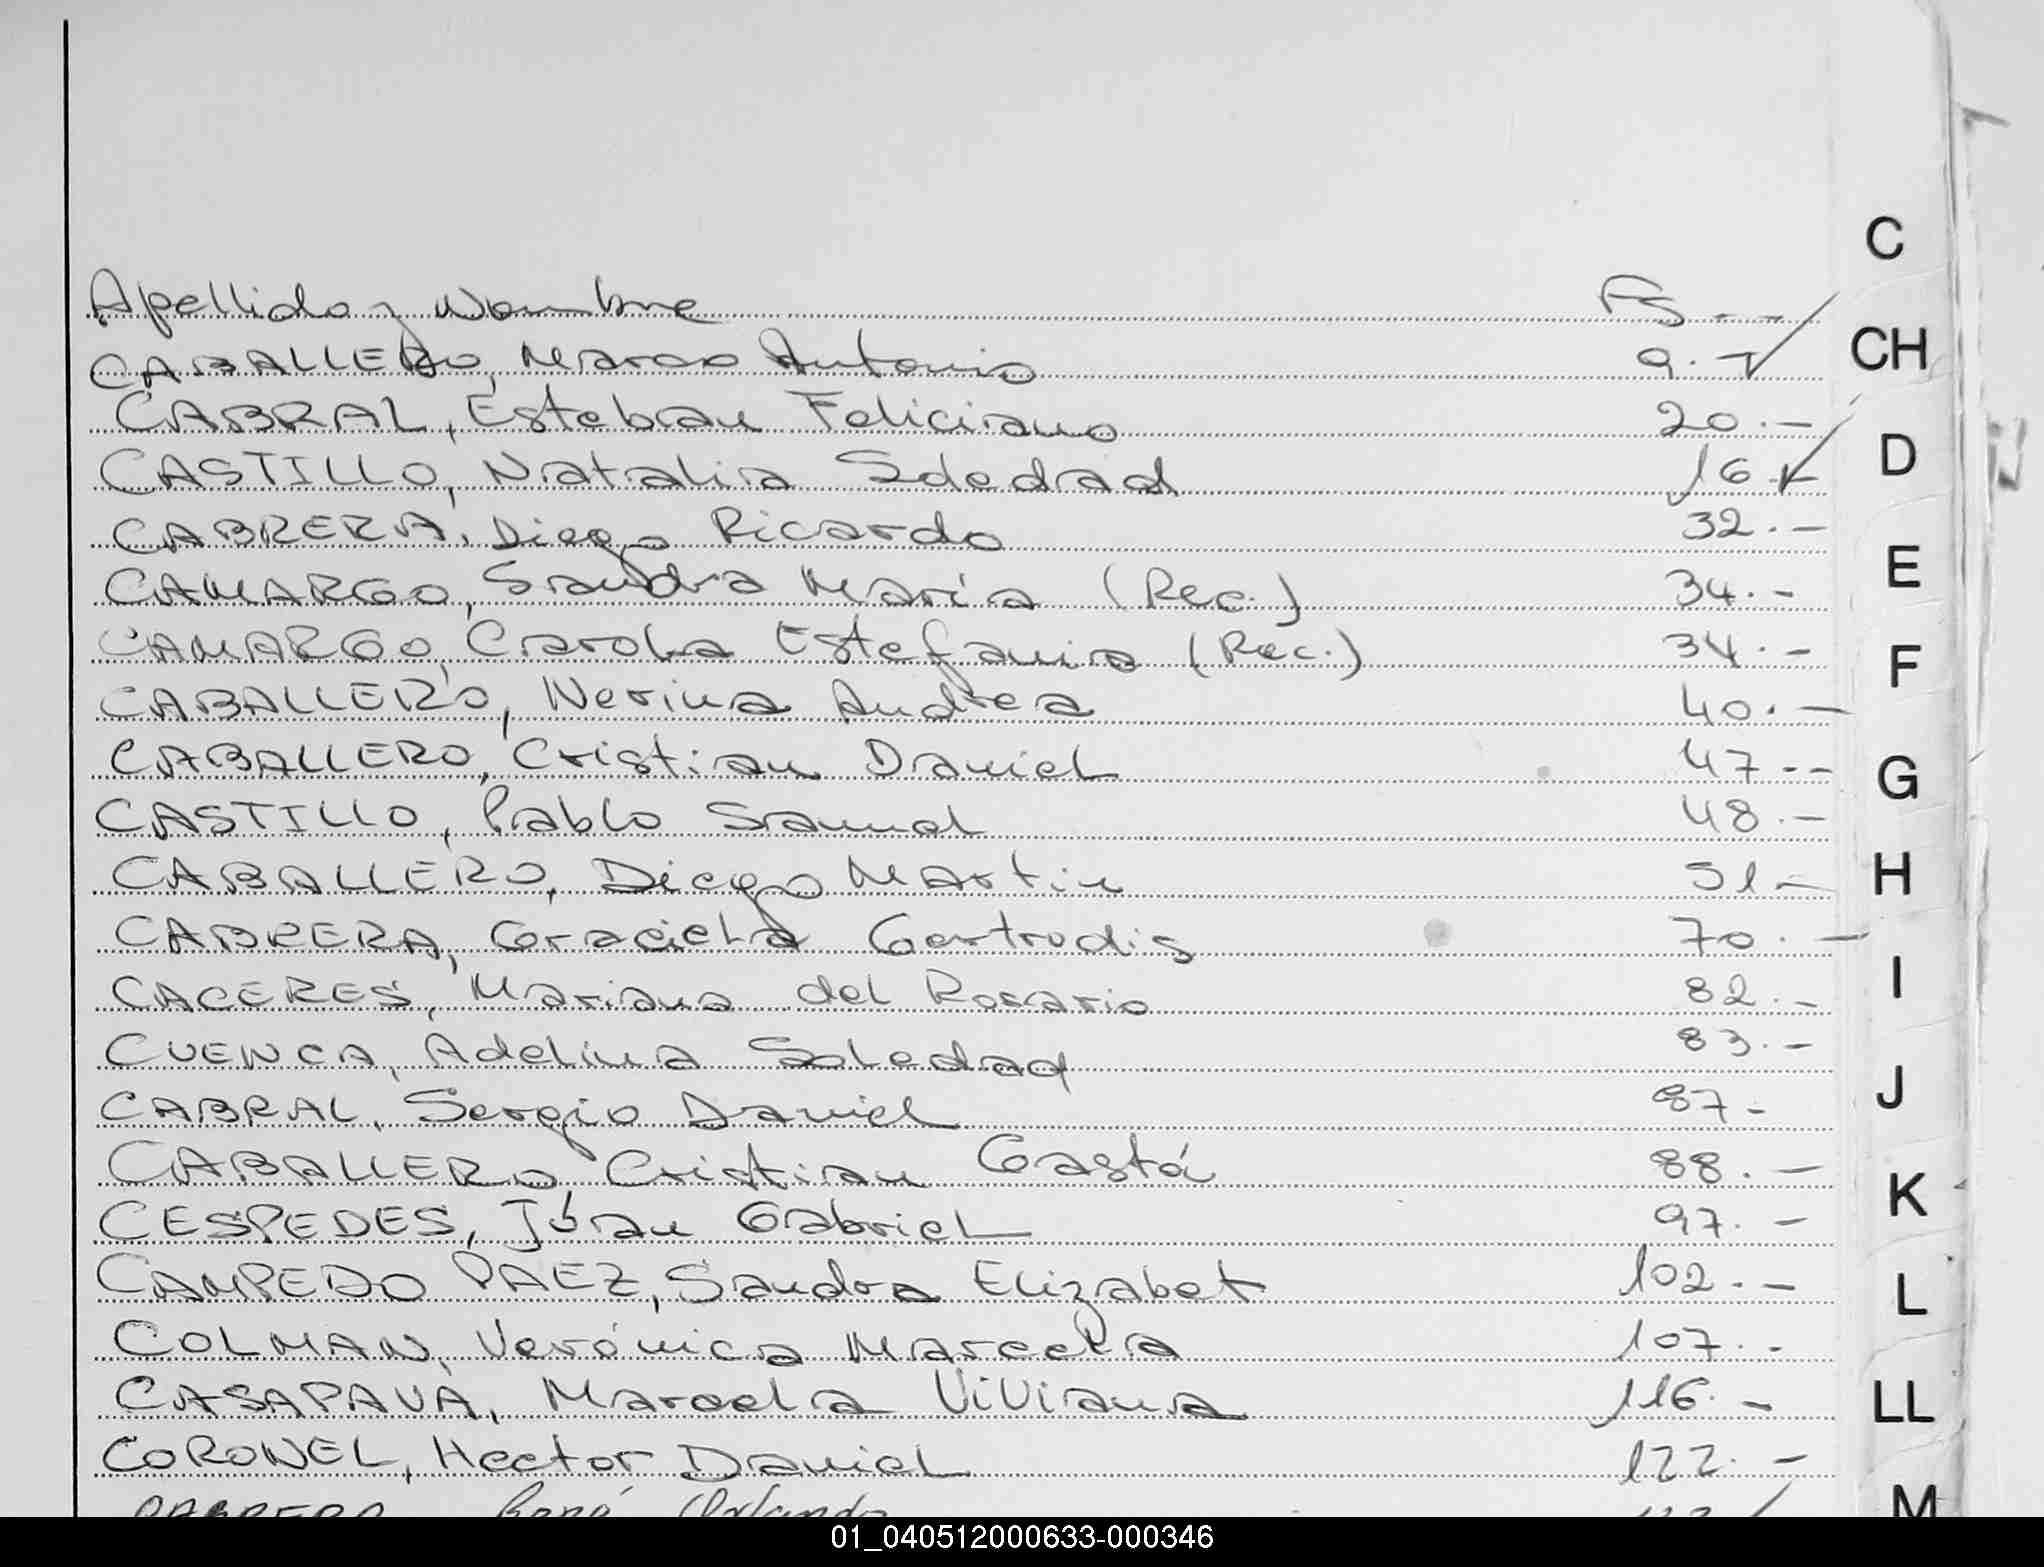 Apellido y Nombre Fs. --
CABALLERO, Marco Antonio 9.-
CABRAL, Esteban Feliciano 20.-
CASTILLO, Natalia Soledad 16.-
CABRERA, Diego Ricardo 32.-
CAMARGO, Sandra María (Rec.) 34.-
CAMARGO, Carola Estefania (Rec.) 34.-
CABALLERO, Nerina Andrea 40.-
CABALLERO, Cristian Daniel 47.--
CASTILLO, Pablo Samuel 48.-
CABALLERO, Diego Martin 51.-
CABRERA, Graciela Gertrudis 70.-
CACERES, Mariana del Rosario 82.-
CUENCA, Adelina Soledad 83.-
CABRAL, Sergio Daniel 87-
CABALLERO, Cristian Gastó 88.-
CESPEDES, Júan Gabriel 97.-
CAMPEDO PAEZ, Sandra Elizabet 102.-
COLMAN, Verónica Marcela 107.-
CASAPAVA, Marcela Viviana 116.-
CORONEL, Hector Daniel 122.-
CABRERA René Orlando
C
CH
D
E
F
G
H
I
J
K
L
LL
M
01_040512000633-000346